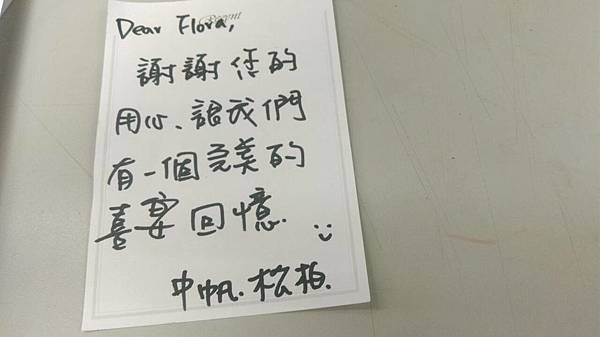 Dear Flora,
謝謝您的
用心、讓我們
有一個完美的
喜宴回憶. :)
中帆. 松柏.